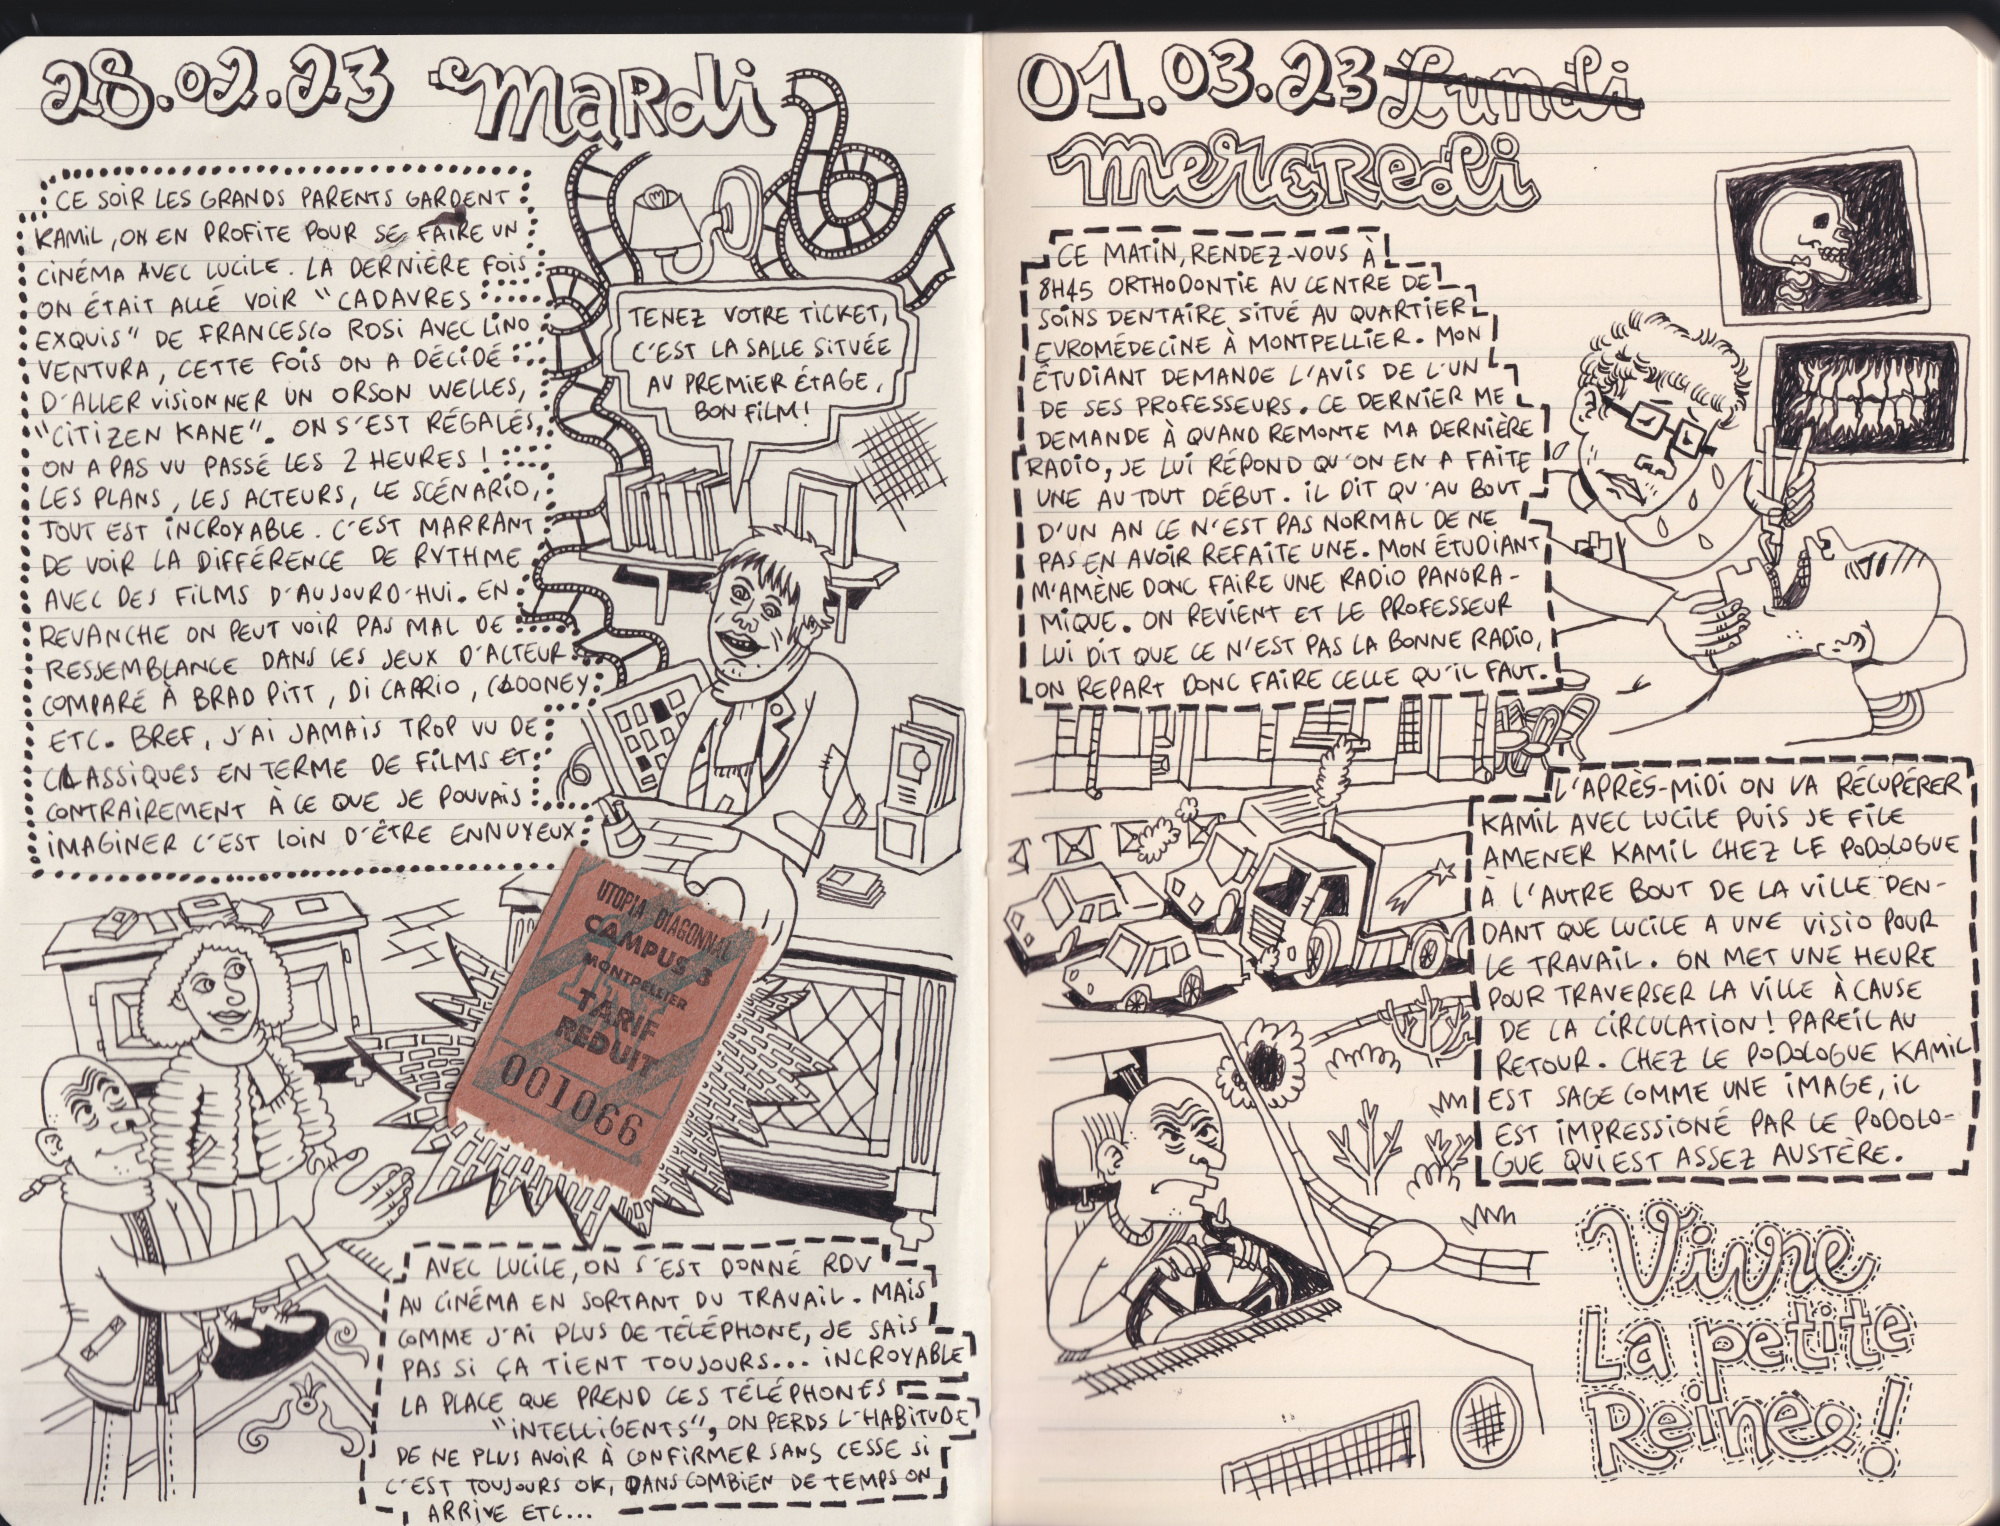 28.02.23 Mardi
CE SOIR LES GRANDS PARENTS GARDENT
KAMIL, ON EN PROFITE POUR SE FAIRE UN
CINÉMA AVEC LUCILE. LA DERNIÈRE FOIS
ON ÉTAIT ALLÉ VOIR "CADAVRES
EXQUIS" DE FRANCESCO ROSI AVEC LINO
VENTURA, CETTE FOIS ON A DÉCIDÉ
D'ALLER VISIONNER UN ORSON WELLES,
"CITIZEN KANE". ON S'EST RÉGALÉS,
ON A PAS VU PASSÉ LES 2 HEURES !
LES PLANS, LES ACTEURS, LE SCÉNARIO,
TOUT EST INCROYABLE. C'EST MARRANT
DE VOIR LA DIFFÉRENCE DE RYTHME
AVEC DES FILMS D'AUJOURD'HUI. EN
REVANCHE ON PEUT VOIR PAS MAL DE
RESSEMBLANCE DANS LES JEUX D'ACTEUR
COMPARÉ À BRAD PITT, DI CAPRIO, CLOONEY
ETC. BREF, J'AI JAMAIS TROP VU DE
CLASSIQUES EN TERME DE FILMS ET
CONTRAIREMENT À CE QUE JE POUVAIS
IMAGINER C'EST LOIN D'ÊTRE ENNUYEUX
TENEZ VOTRE TICKET,
C'EST LA SALLE SITUÉE
AU PREMIER ÉTAGE,
BON FILM !
UTOPIA DIAGONAL
CAMPUS 3
MONTPELLIER
TARIF
REDUIT
001066
AVEC LUCILE, ON S'EST DONNÉ RDV
AU CINÉMA EN SORTANT DU TRAVAIL. MAIS
COMME J'AI PLUS DE TÉLÉPHONE, JE SAIS
PAS SI ÇA TIENT TOUJOURS... INCROYABLE
LA PLACE QUE PREND CES TÉLÉPHONES
"INTELLIGENTS", ON PERDS L'HABITUDE
DE NE PLUS AVOIR À CONFIRMER SANS CESSE SI
C'EST TOUJOURS OK, DANS COMBIEN DE TEMPS ON
ARRIVE ETC...
01.03.23 Lundi
Mercredi
CE MATIN, RENDEZ-VOUS À
8H45 ORTHODONTIE AU CENTRE DE
SOINS DENTAIRE SITUÉ AU QUARTIER
EUROMÉDECINE À MONTPELLIER. MON
ÉTUDIANT DEMANDE L'AVIS DE L'UN
DE SES PROFESSEURS. CE DERNIER ME
DEMANDE À QUAND REMONTE MA DERNIÈRE
RADIO, JE LUI RÉPOND QU'ON EN A FAITE
UNE AU TOUT DÉBUT. IL DIT QU'AU BOUT
D'UN AN CE N'EST PAS NORMAL DE NE
PAS EN AVOIR REFAITE UNE. MON ÉTUDIANT
M'AMÈNE DONC FAIRE UNE RADIO PANORA-
MIQUE. ON REVIENT ET LE PROFESSEUR
LUI DIT QUE CE N'EST PAS LA BONNE RADIO,
ON REPART DONC FAIRE CELLE QU'IL FAUT.
L'APRÈS-MIDI ON VA RÉCUPÉRER
KAMIL AVEC LUCILE PUIS JE FILE
AMENER KAMIL CHEZ LE PODOLOGUE
À L'AUTRE BOUT DE LA VILLE PEN-
DANT QUE LUCILE A UNE VISIO POUR
LE TRAVAIL. ON MET UNE HEURE
POUR TRAVERSER LA VILLE À CAUSE
DE LA CIRCULATION ! PAREIL AU
RETOUR. CHEZ LE PODOLOGUE KAMIL
EST SAGE COMME UNE IMAGE, IL
EST IMPRESSIONÉ PAR LE PODOLO-
GUE QUI EST ASSEZ AUSTÈRE.
Vivre
La petite
Reine !